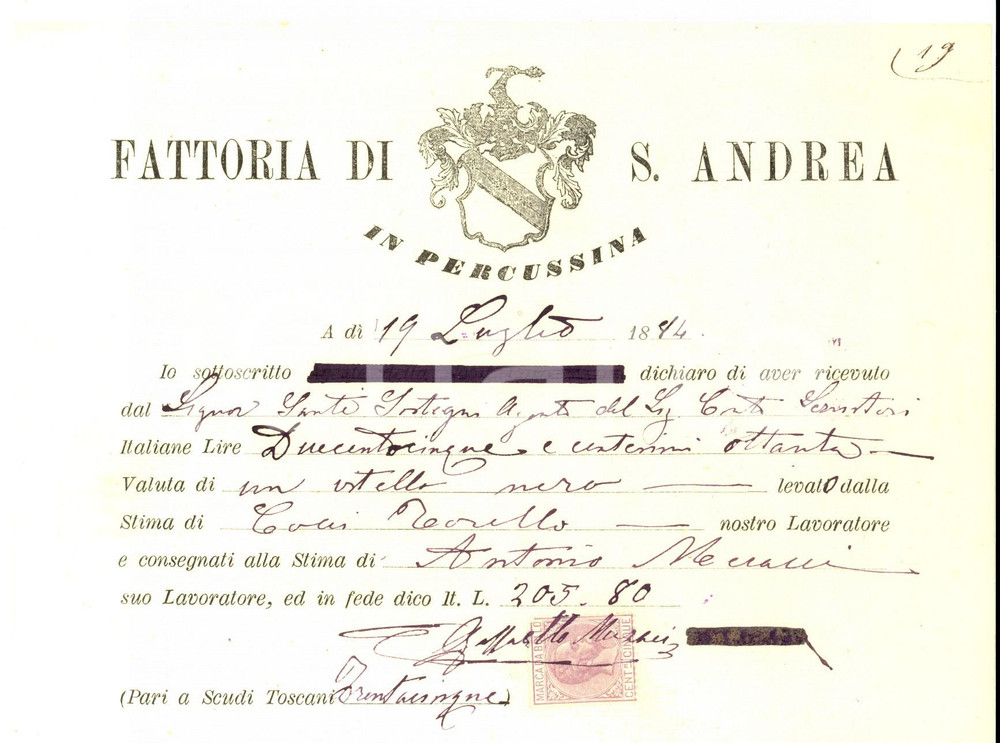 19
FATTORIA DI S. ANDREA
IN PERCUSSINA
A dì 19 Luglio 1884.
Io sottoscritto dichiaro di aver ricevuto
dal Signor Santi Sostegni Agente del Sig. Conte
Italiane Lire Duecentocinque e centesimi ottanta
Valuta di un vitello nero levato dalla
Stima di Torello nostro Lavoratore
e consegnati alla Stima di Antonio
suo Lavoratore, ed in fede dico It. L. 205.80
MARCA DA BOLLO
CENT. CINQUE
(Pari a Scudi Toscani Trentacinque)